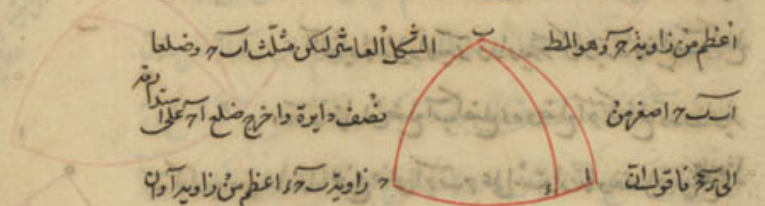 اعظم من زاوية ح و هو المط الشكل العاشر ليكن مثلث اب ح وضلعا
اب ب ح اصغر من نصف دايرة واخرج ضلع ا ح على استدارته
الى ء فاقول ان زاوية ب ح ء اعظم من زاوية ا وان
ب
ا
ء
ح